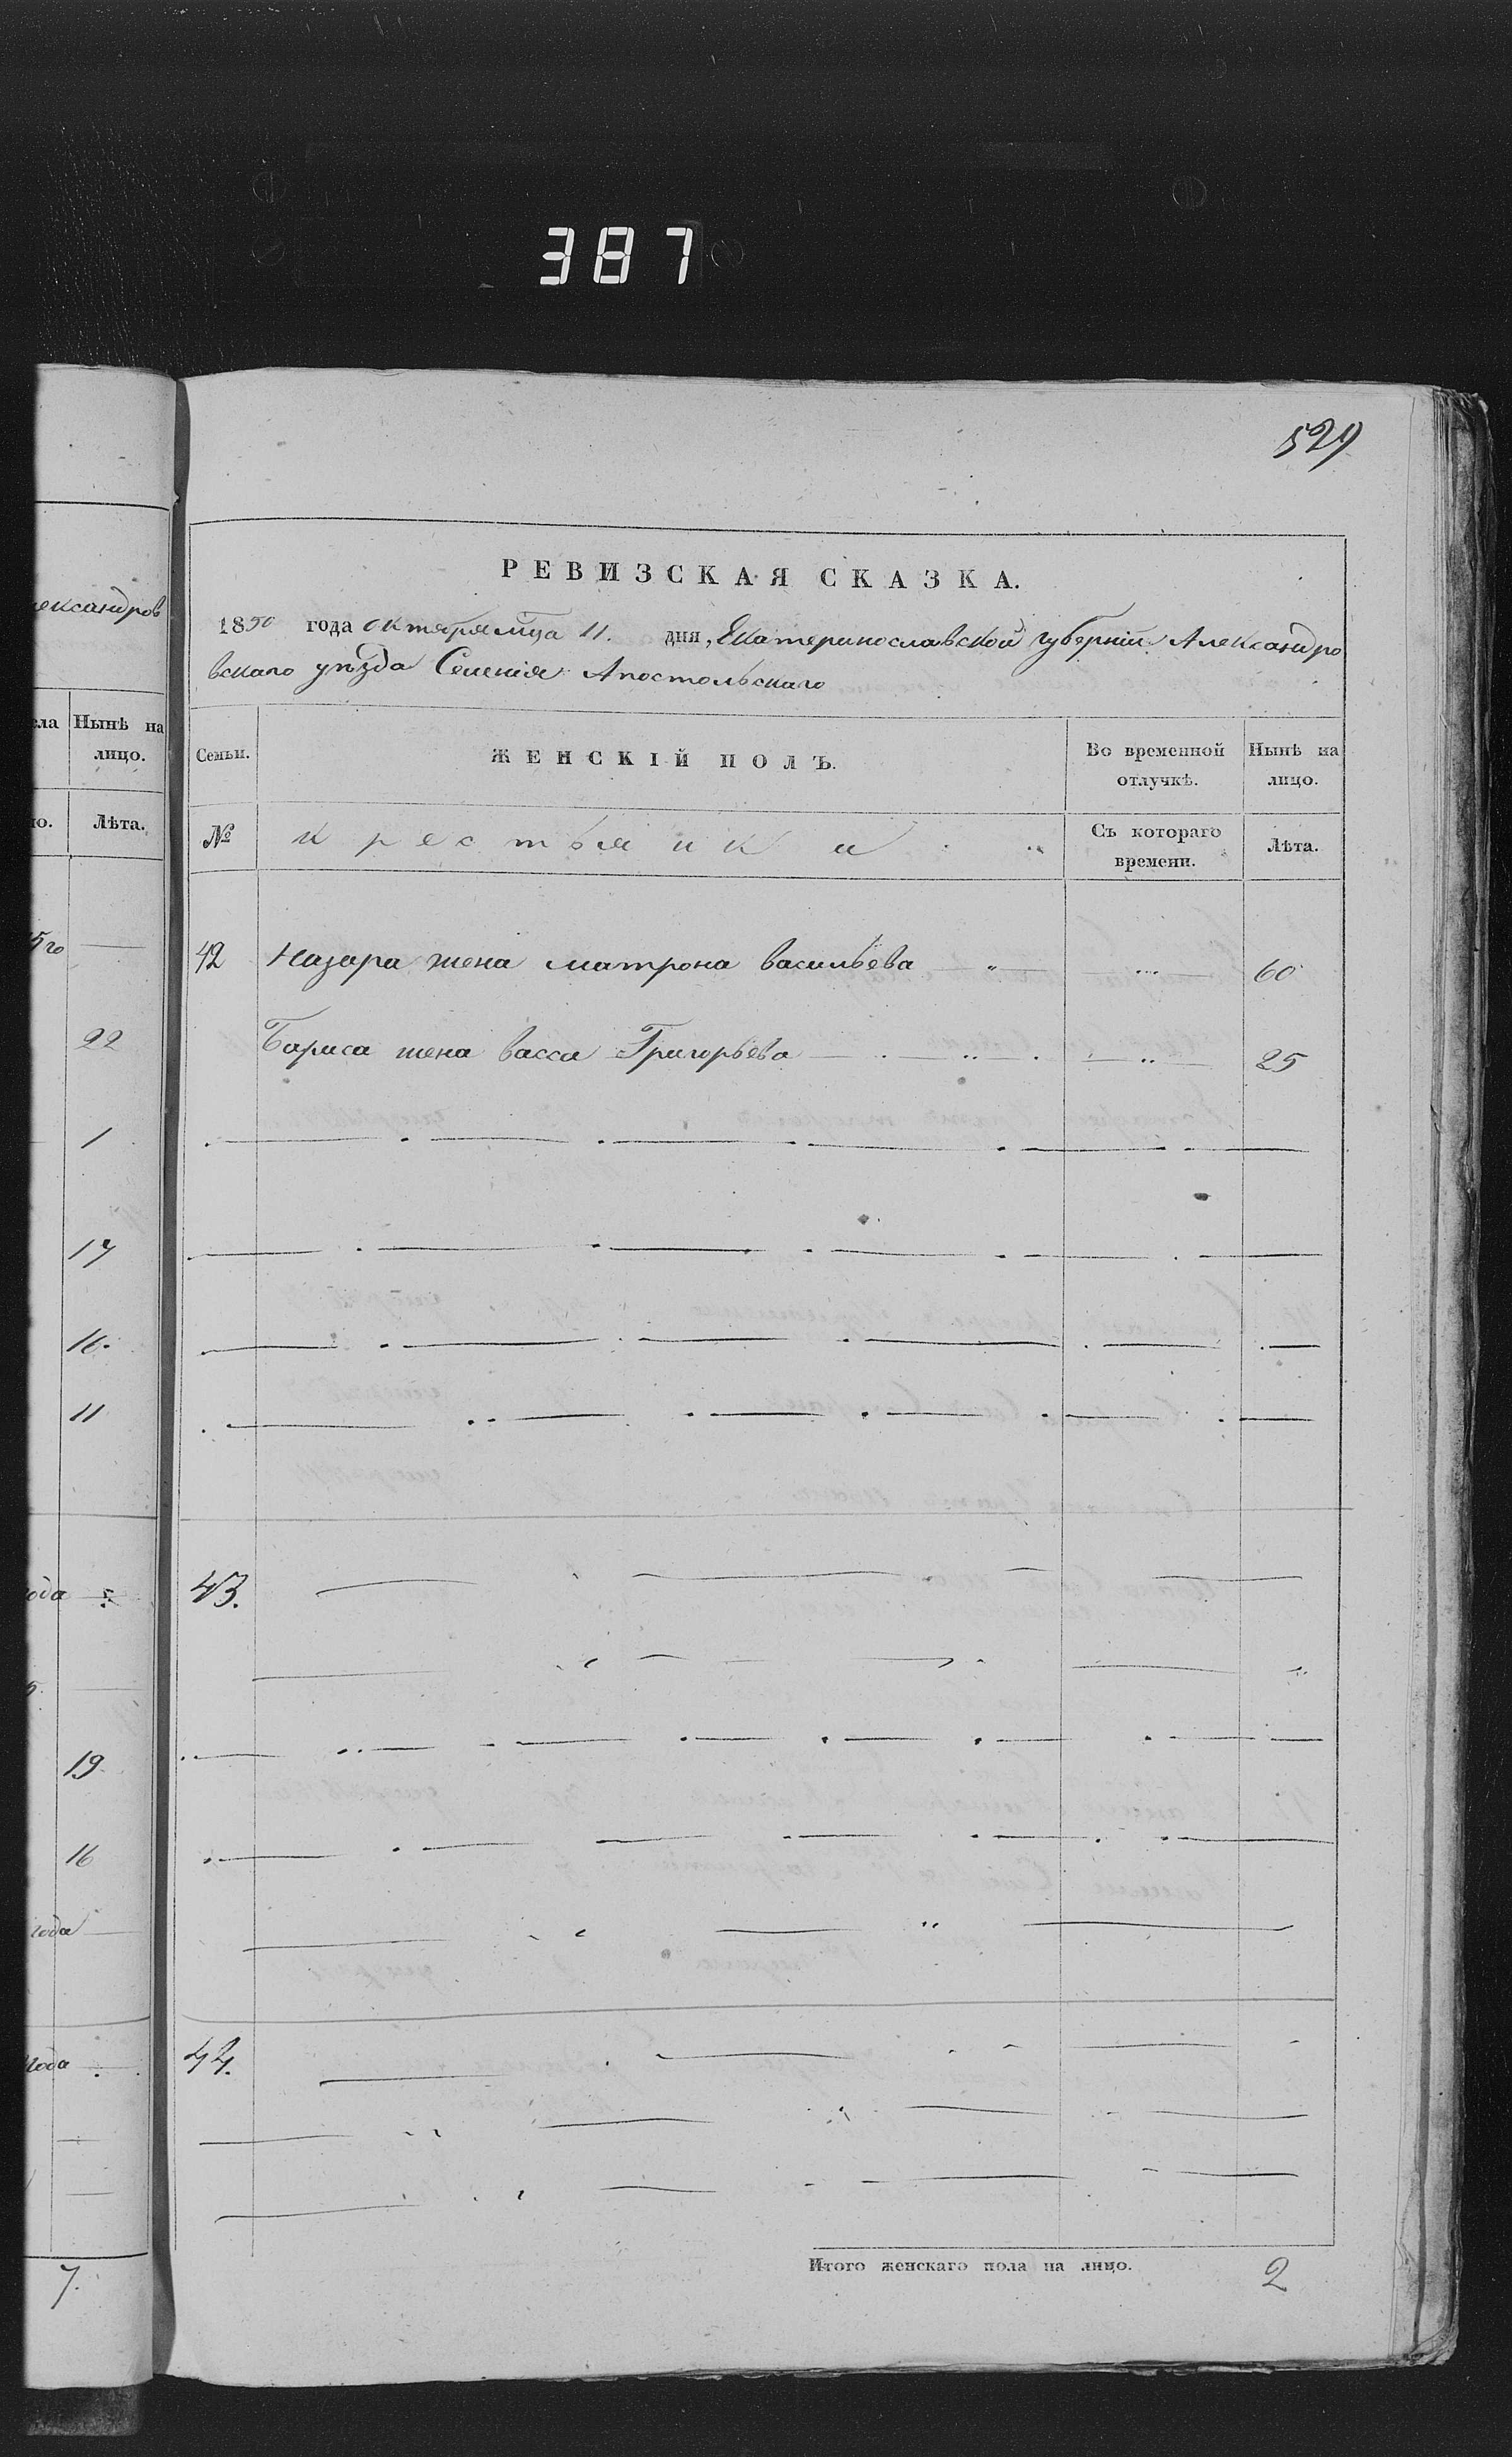 387
529
РЕВИЗСКАЯ СКАЗКА.
1850 года октября мца 11. дня, Екатеринославской губернiи Александро
вскаго уѣзда Селенiя Апостольскаго
Семьи.
ЖЕНСКІЙ ПОЛЪ.
Во временной отлучкѣ.
Нынѣ на лицо.
№
крестьянки
Съ котораго времени.
Лѣта.
42 Назара жена матрона васильева 60
Бариса жена васса Григорьева 25
43.
44.
Итого женскаго пола на лицо. 2
лександров
Нынѣ на
лицо.
Лѣта.
22
1
17
16.
11
года
19
16
года
года
7.